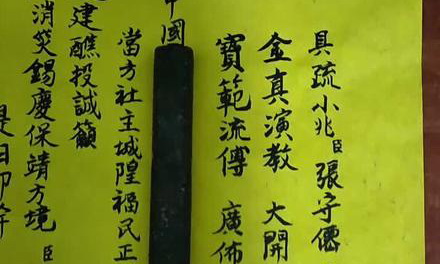 具疏小兆臣張守僊
金真演教 大開
寶範流傳 廣佈
中國
當方社主城隍福民正
建醮投誠籲
消災錫慶保靖方境 臣
是日仰